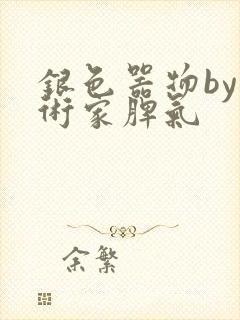 銀色器物by
術家脾氣
余繁